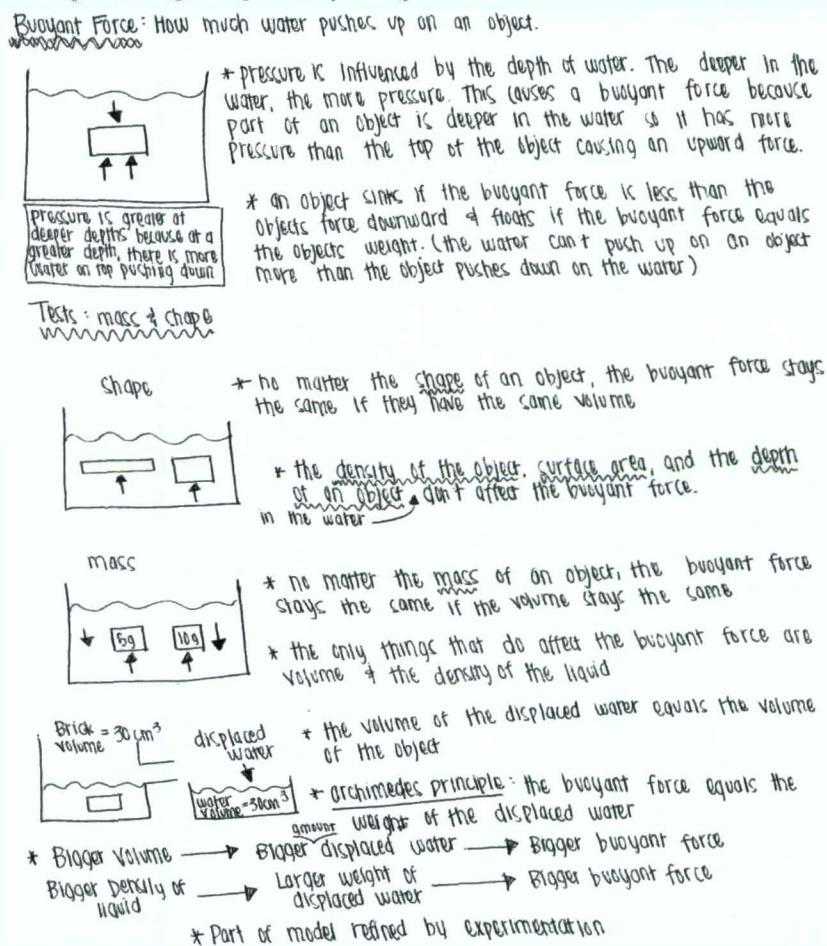 Buoyant Force: How much water pushes up on an object.
* pressure is influenced by the depth of water. The deeper in the
water, the more pressure. This causes a buoyant force because
part of an object is deeper in the water so it has more
pressure than the top of the object causing an upward force.
pressure is greater at
deeper depths because at a
greater depth, there is more
water on top pushing down
* an object sinks if the buoyant force is less than the
objects force downward & floats if the buoyant force equals
the objects weight. (the water can't push up on an object
more than the object pushes down on the water)
Tests: mass & shape
shape
* no matter the shape of an object, the buoyant force stays
the same if they have the same volume
* the density of the object, surface area, and the depth
of an object don't affect the buoyant force.
in the water
mass
* no matter the mass of an object, the buoyant force
stays the same if the volume stays the same
5g
10g
* the only things that do affect the buoyant force are
volume & the density of the liquid
Brick = 30cm³
volume
displaced
water
water
volume = 30cm³
* the volume of the displaced water equals the volume
of the object
* archimedes principle: the buoyant force equals the
weight of the displaced water
amount
* Bigger volume → Bigger displaced water → Bigger buoyant force
Bigger Density of
liquid
→ Larger weight of
displaced water
→ Bigger buoyant force
* Part of model refined by experimentation